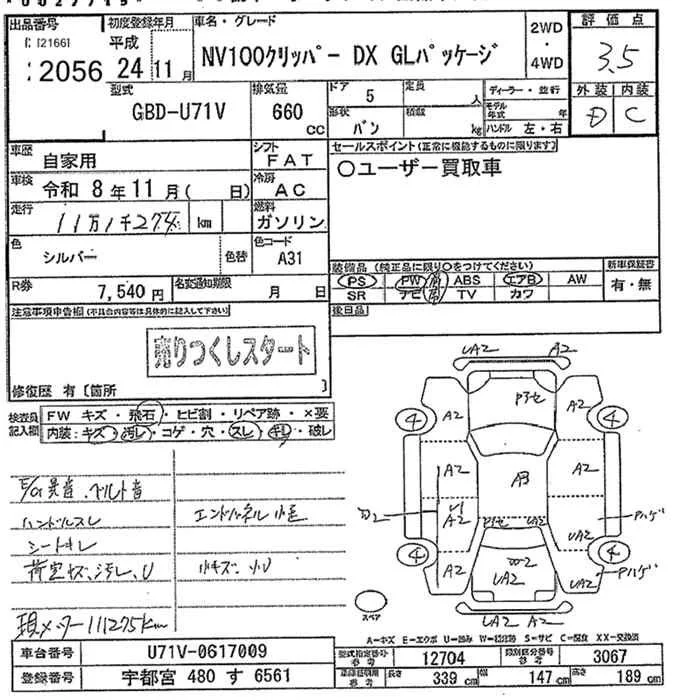 出品番号 初度登録年月 車名・グレード 2WD・4WD 評価点
(21661 平成
2056 24年 11月 NV100クリッパー DX GLパッケージ 3.5
型式 排気量 ドア 定員 ディーラー・並行 外装 内装
GBD-U71V 660 cc 5 人 モデル年式 年 D C
形状 積載 ハンドル 左・右
バン kg
車歴 自家用 シフト FAT セールスポイント(正常に機能するものに限ります)
車検 令和 8年 11月( 日) 冷房 AC 〇ユーザー買取車
走行 11万1千274 km 燃料 ガソリン
色 シルバー 色替 色コード A31
装備品 (純正品に限り〇をつけてください) 新車保証書
R券 7,540円 名変通知期限 月 日 PS PW ABS エアB AW 有・無
SR ナビ TV カワ
注意事項申告欄(不具合内容等は具体的に記入して下さい) 後日品
売りつくしスタート
修復歴 有〔箇所 〕
検査員記入欄 FW キズ・飛石・ヒビ割・リペア跡・×要
内装:キズ・汚レ・コゲ・穴・スレ・キレ・破レ
E/G異音、ベルト音
ハンドルスレ エンドパネル小凹
シートキレ
荷室キズ、汚レ、U 小キズ、小U
現メーター111275km
UA2 A2
A2 A2
4 4
A2 A3 A2
U1
A2 UA2 UA2 Pハゲ
4 4
A2 W2 UA2 UA2 Pハゲ
UA2 A2
スペア
A=キズ E=エクボ U=凹み W=補修跡 S=サビ C=腐食 XX=交換済
車台番号 U71V-0617009 型式指定番号 参考 12704 類別区分番号 参考 3067
登録番号 宇都宮 480 す 6561 長さ 339cm 幅 147cm 高さ 189cm